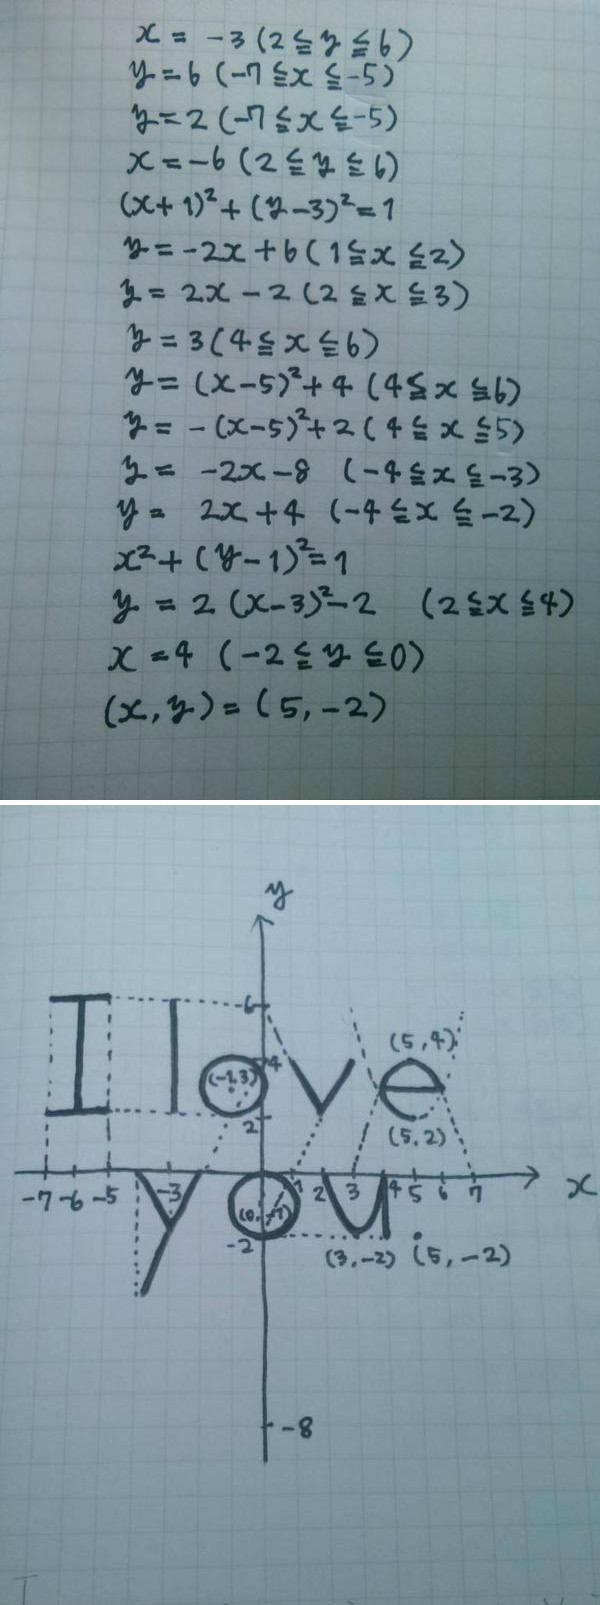 x = -3 (2 ≦ y ≦ 6)
y = 6 (-7 ≦ x ≦ -5)
y = 2 (-7 ≦ x ≦ -5)
x = -6 (2 ≦ y ≦ 6)
(x+1)² + (y-3)² = 1
y = -2x + 6 (1 ≦ x ≦ 2)
y = 2x - 2 (2 ≦ x ≦ 3)
y = 3 (4 ≦ x ≦ 6)
y = (x-5)² + 4 (4 ≦ x ≦ 6)
y = -(x-5)² + 2 (4 ≦ x ≦ 5)
y = -2x - 8 (-4 ≦ x ≦ -3)
y = 2x + 4 (-4 ≦ x ≦ -2)
x² + (y-1)² = 1
y = 2(x-3)² - 2 (2 ≦ x ≦ 4)
x = 4 (-2 ≦ y ≦ 0)
(x, y) = (5, -2)
y
6
I love
4
(5, 4)
(-1, 3)
2
(5, 2)
-7 -6 -5 -3 1 2 3 4 5 6 7 x
you.
(0, -1)
-2
(3, -2) (5, -2)
-8